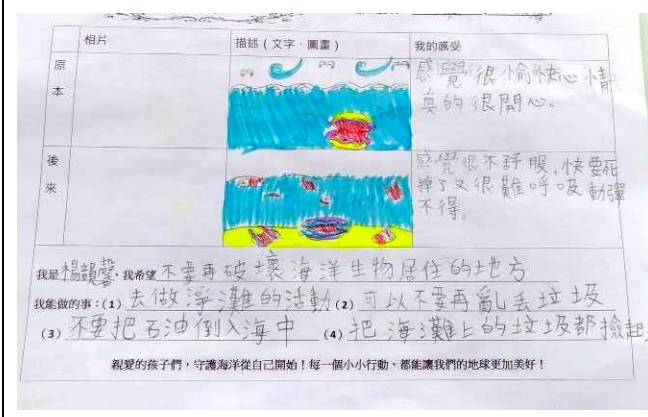 相片 描述(文字、圖畫) 我的感受
原本
感覺很愉快心情
真的很開心。
後來
感覺很不舒服,快要死
掉了又很難呼吸動彈
不得。
我是楊韻馨,我希望不要再破壞海洋生物居住的地方
我能做的事:(1)去做淨灘的活動(2)可以不要再亂丟垃圾
(3)不要把石油倒入海中 (4)把海灘上的垃圾都撿起
親愛的孩子們,守護海洋從自己開始!每一個小小行動,都能讓我們的地球更加美好!